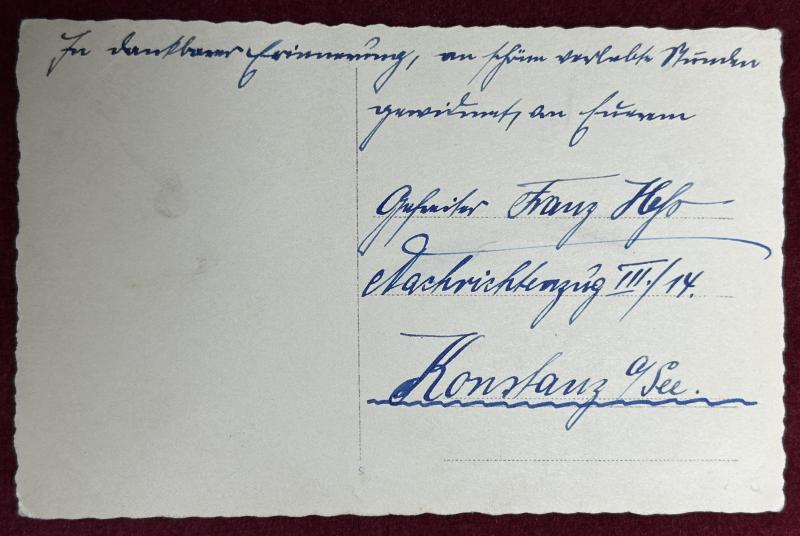 In dankbarer Erinnerung, an schöne verlebte Stunden
gewidmet, von Euerem
Gefreiter Franz
Nachrichtenzug III./14.
Konstanz a/See.